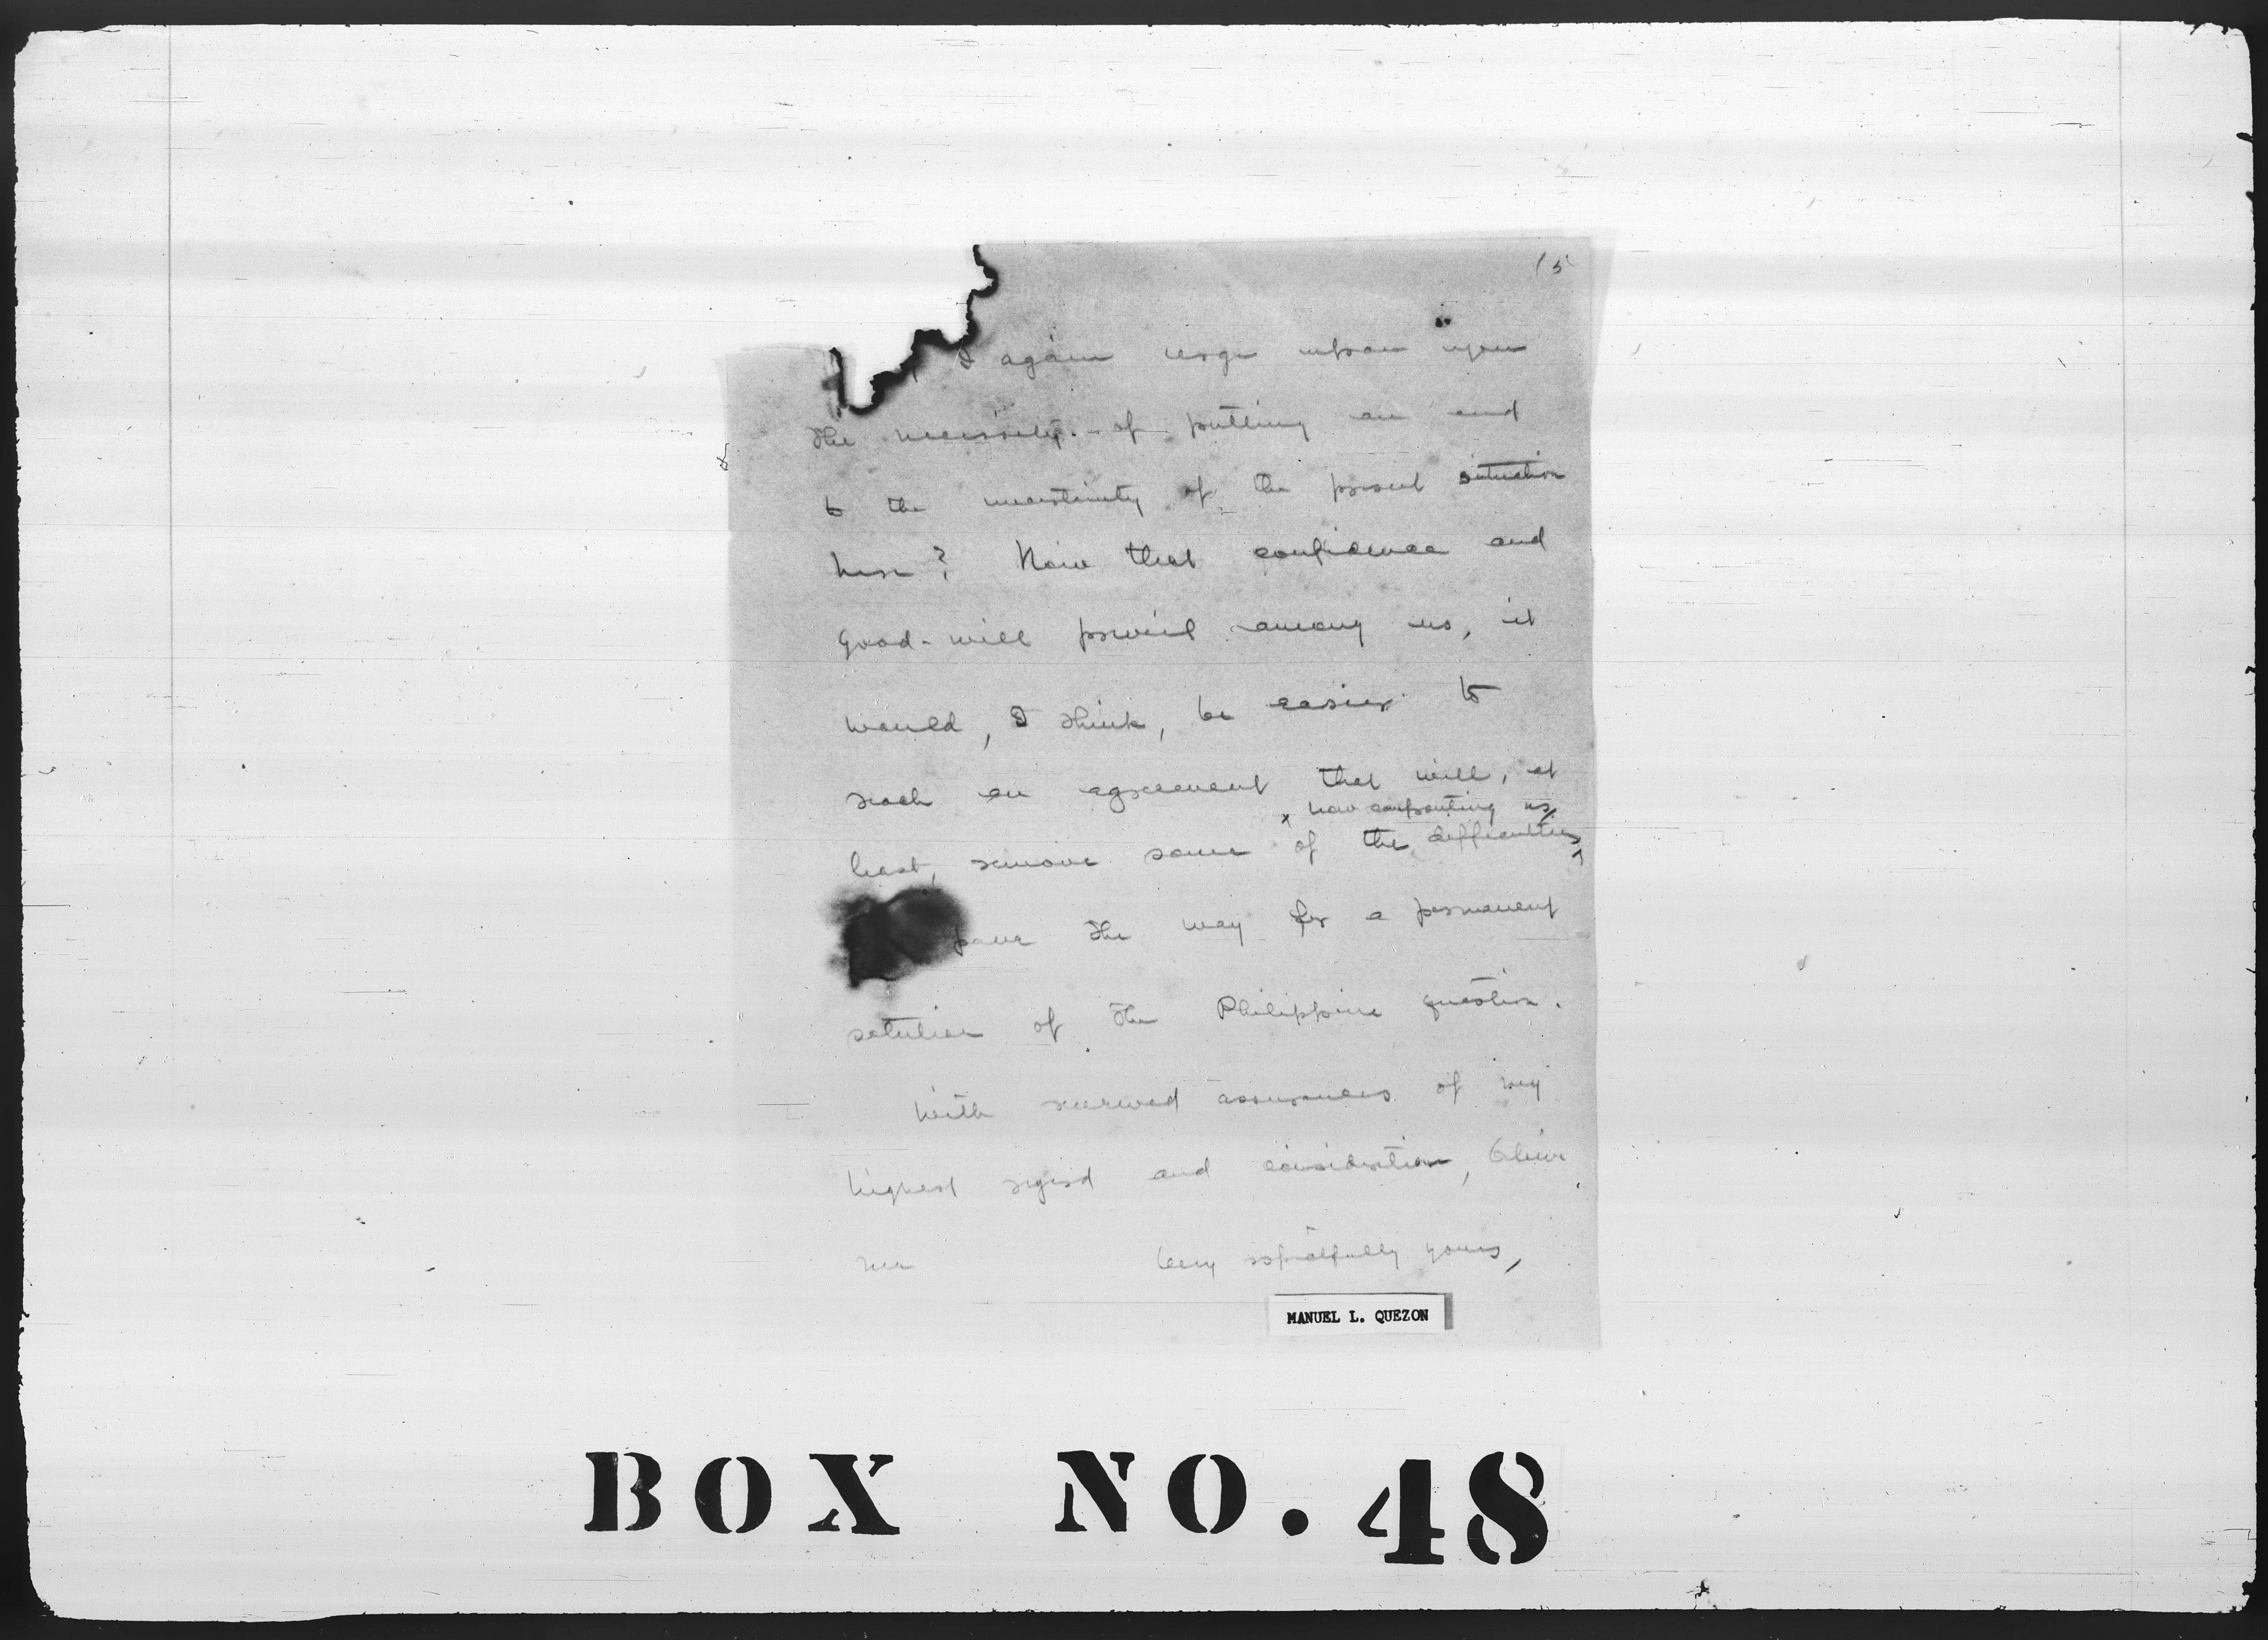 15
I again urge upon you
the necessity of putting an end
to the uncertainty of the present situation
here? Now that confidence and
good-will prevail among us, it
would, I think, be easier to
reach an agreement that will, at
now confronting us
least, remove some of the difficulties
pave the way for a permanent
solution of the Philippine question.
With renewed assurances of my
highest regard and consideration, believe
me Very respectfully yours,
MANUEL L. QUEZON
BOX NO. 48